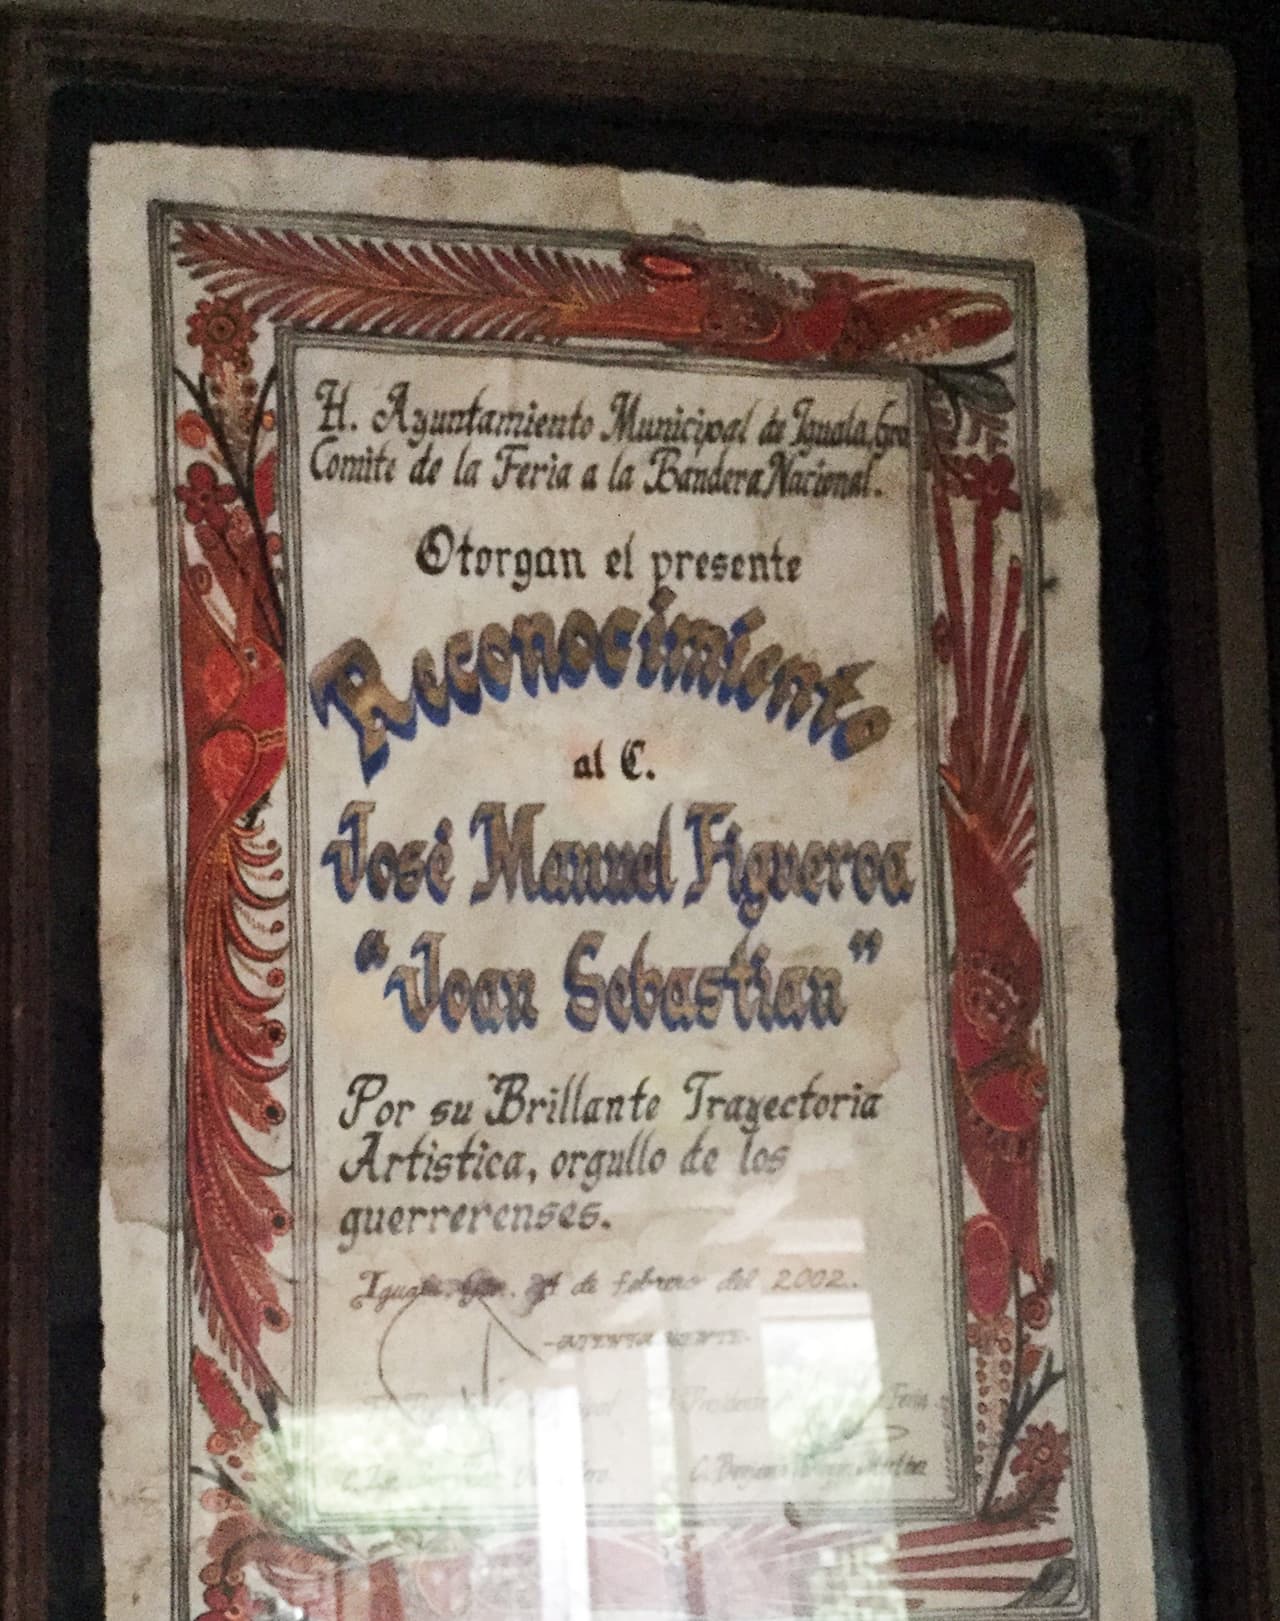 H. Ayuntamiento Municipal de Iguala, Gro.
Comite de la Feria a la Bandera Nacional.
Otorgan el presente
Reconocimiento
al C.
José Manuel Figueroa
"Joan Sebastian"
Por su Brillante Trayectoria
Artistica, orgullo de los
guerrerenses.
Iguala, Gro. de febrero del 2002.
-ATENTAMENTE-
Presidente Feria